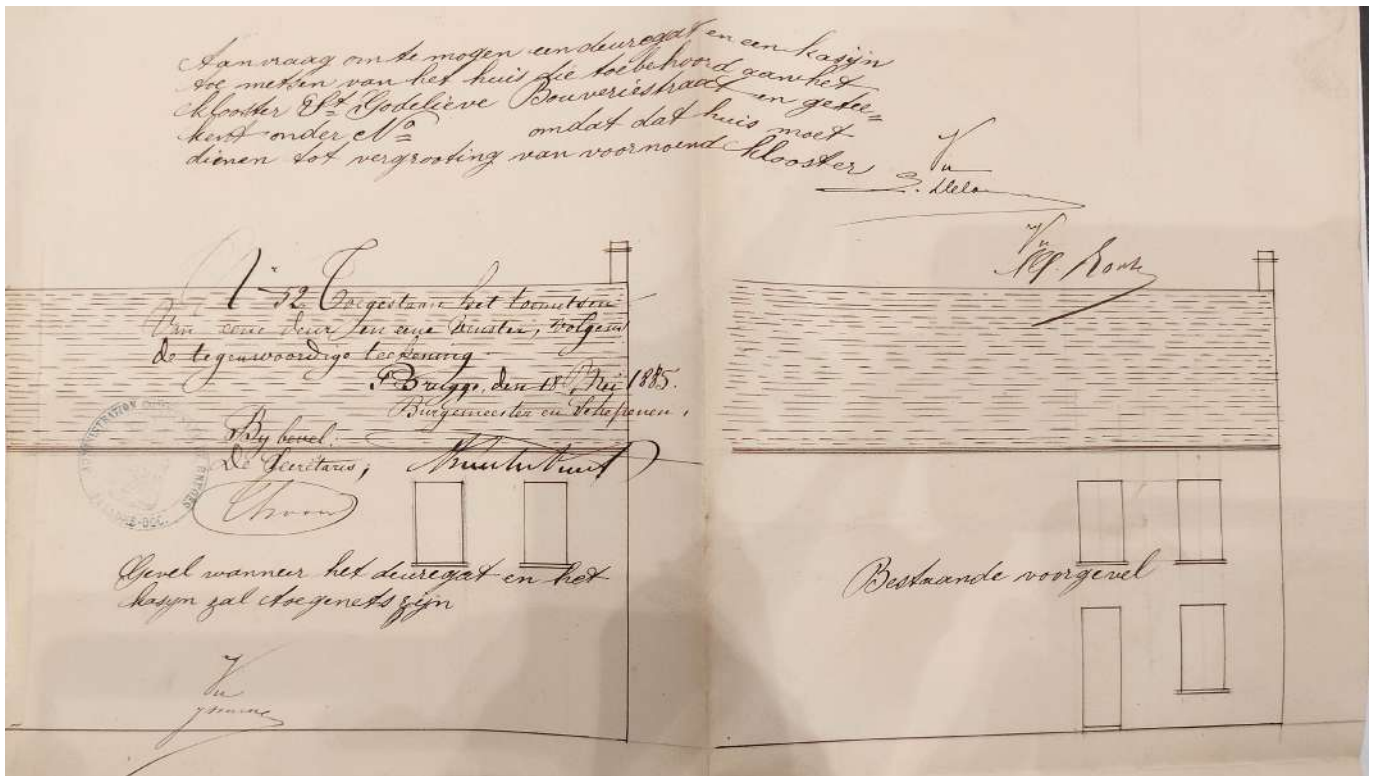 Aanvraag om te mogen een deuregat en een kasijn
toe metsen van het huis die toebehoord aan het
klooster St Godelieve Bouveriestraat en getee=
kent onder No omdat dat huis moet
dienen tot vergrooting van voornoemd klooster
Vu
Vu
No 52 Toegestaan het toemetsen
Van eene deur en eene venster, volgens
de tegenwoordige teekening
Brugge, den 18 Mei 1885.
Burgemeester en Schepenen,
By bevel:
De Secretaris,
ADMINISTRATION
Gevel wanneer het deuregat en het
kasyn zal toegemetst zijn
Bestaande voorgevel
Vu